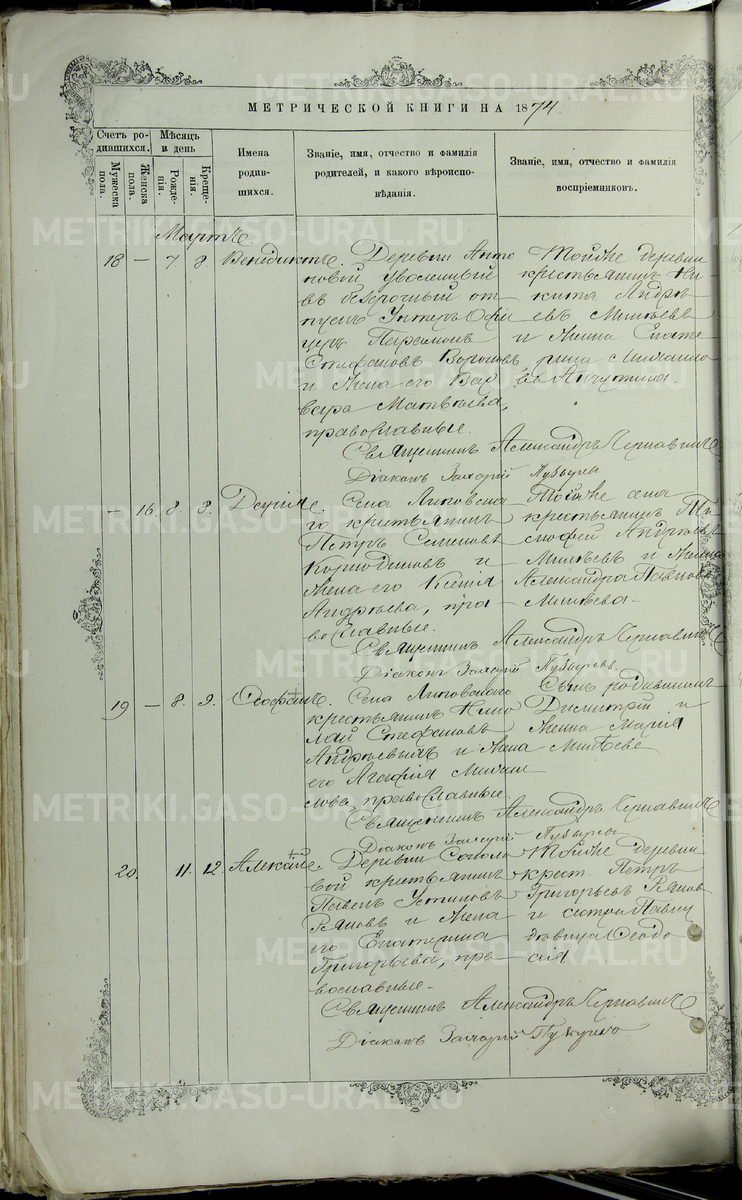 МЕТРИЧЕСКОЙ КНИГИ НА 1874.
Счетъ родившихся.
Мужеска пола.
Женска пола.
Мѣсяцъ и день
Рожденія.
Крещенія.
Имена родившихся.
Званіе, имя, отчество и фамилія родителей, и какого вѣроисповѣданія.
Званіе, имя, отчество и фамилія воспріемниковъ.
Мартъ.
18 — 7 8. Венедиктъ.
Деревни Анто
новой уволенный
въ безсрочный от
пускъ Унтеръ Офи
церъ Парамонъ
Стефановъ
и жена его Вар
вара Матвѣева,
православные.
Тойже деревни
крестьянинъ Ни
кита Андрѣ
евъ Микѣевъ
и жена Екате
рина
Священникъ Александръ Чернавинъ
Діаконъ Захарій Пузыревъ
— 16. 8. 8. Дарія.
Села Липовска
го крестьянинъ
Петръ Семеновъ
и
жена его Ксенія
Андрѣева, пра
вославные.
Тогоже села
крестьянинъ Ти
мофей Андрѣевъ
Микѣевъ и жена
Александра Павлов
Микѣева
Священникъ Александръ Чернавинъ
Діаконъ Захарій Пузыревъ.
19 — 8. 9. Феофанъ.
Села Липовскаго
крестьянинъ Нико
лай Стефановъ
Андрѣевыхъ и жена
его Агафія Михаи
лова, православные.
Сынъ родившимъ
Димитрій и
жена Марія
Микѣевы
Священникъ Александръ Чернавинъ
Діаконъ Захарій Пузыревъ
20. 11. 12. Алексѣй.
Деревни Соколо
вой крестьянинъ
Павелъ Устиновъ
и жена
его Екатерина
Григорьева, пра
вославные.
Тойже деревни
крест. Петръ
Григорьевъ
и сестра
дѣвица Феодо
сія
Священникъ Александръ Чернавинъ
Діаконъ Захарій Пузыревъ
METRIKI.GASO-URAL.RU